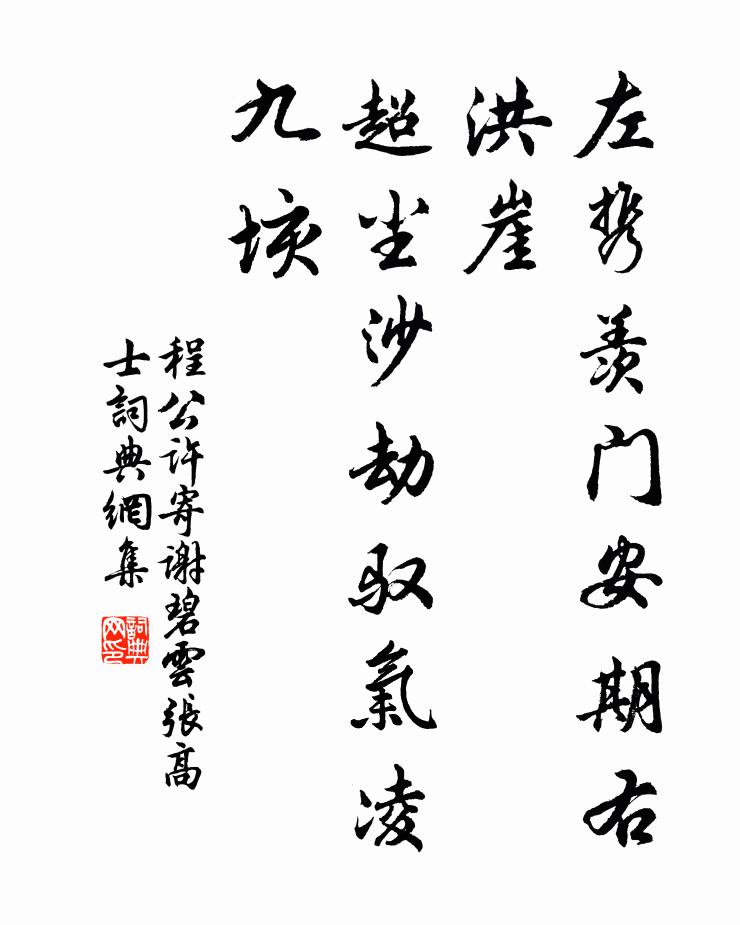 左携羡门安期右
洪崖
超尘沙劫驭氣凌
九垓
程公许寄谢碧雲張高
士詞典網集
詞典网印